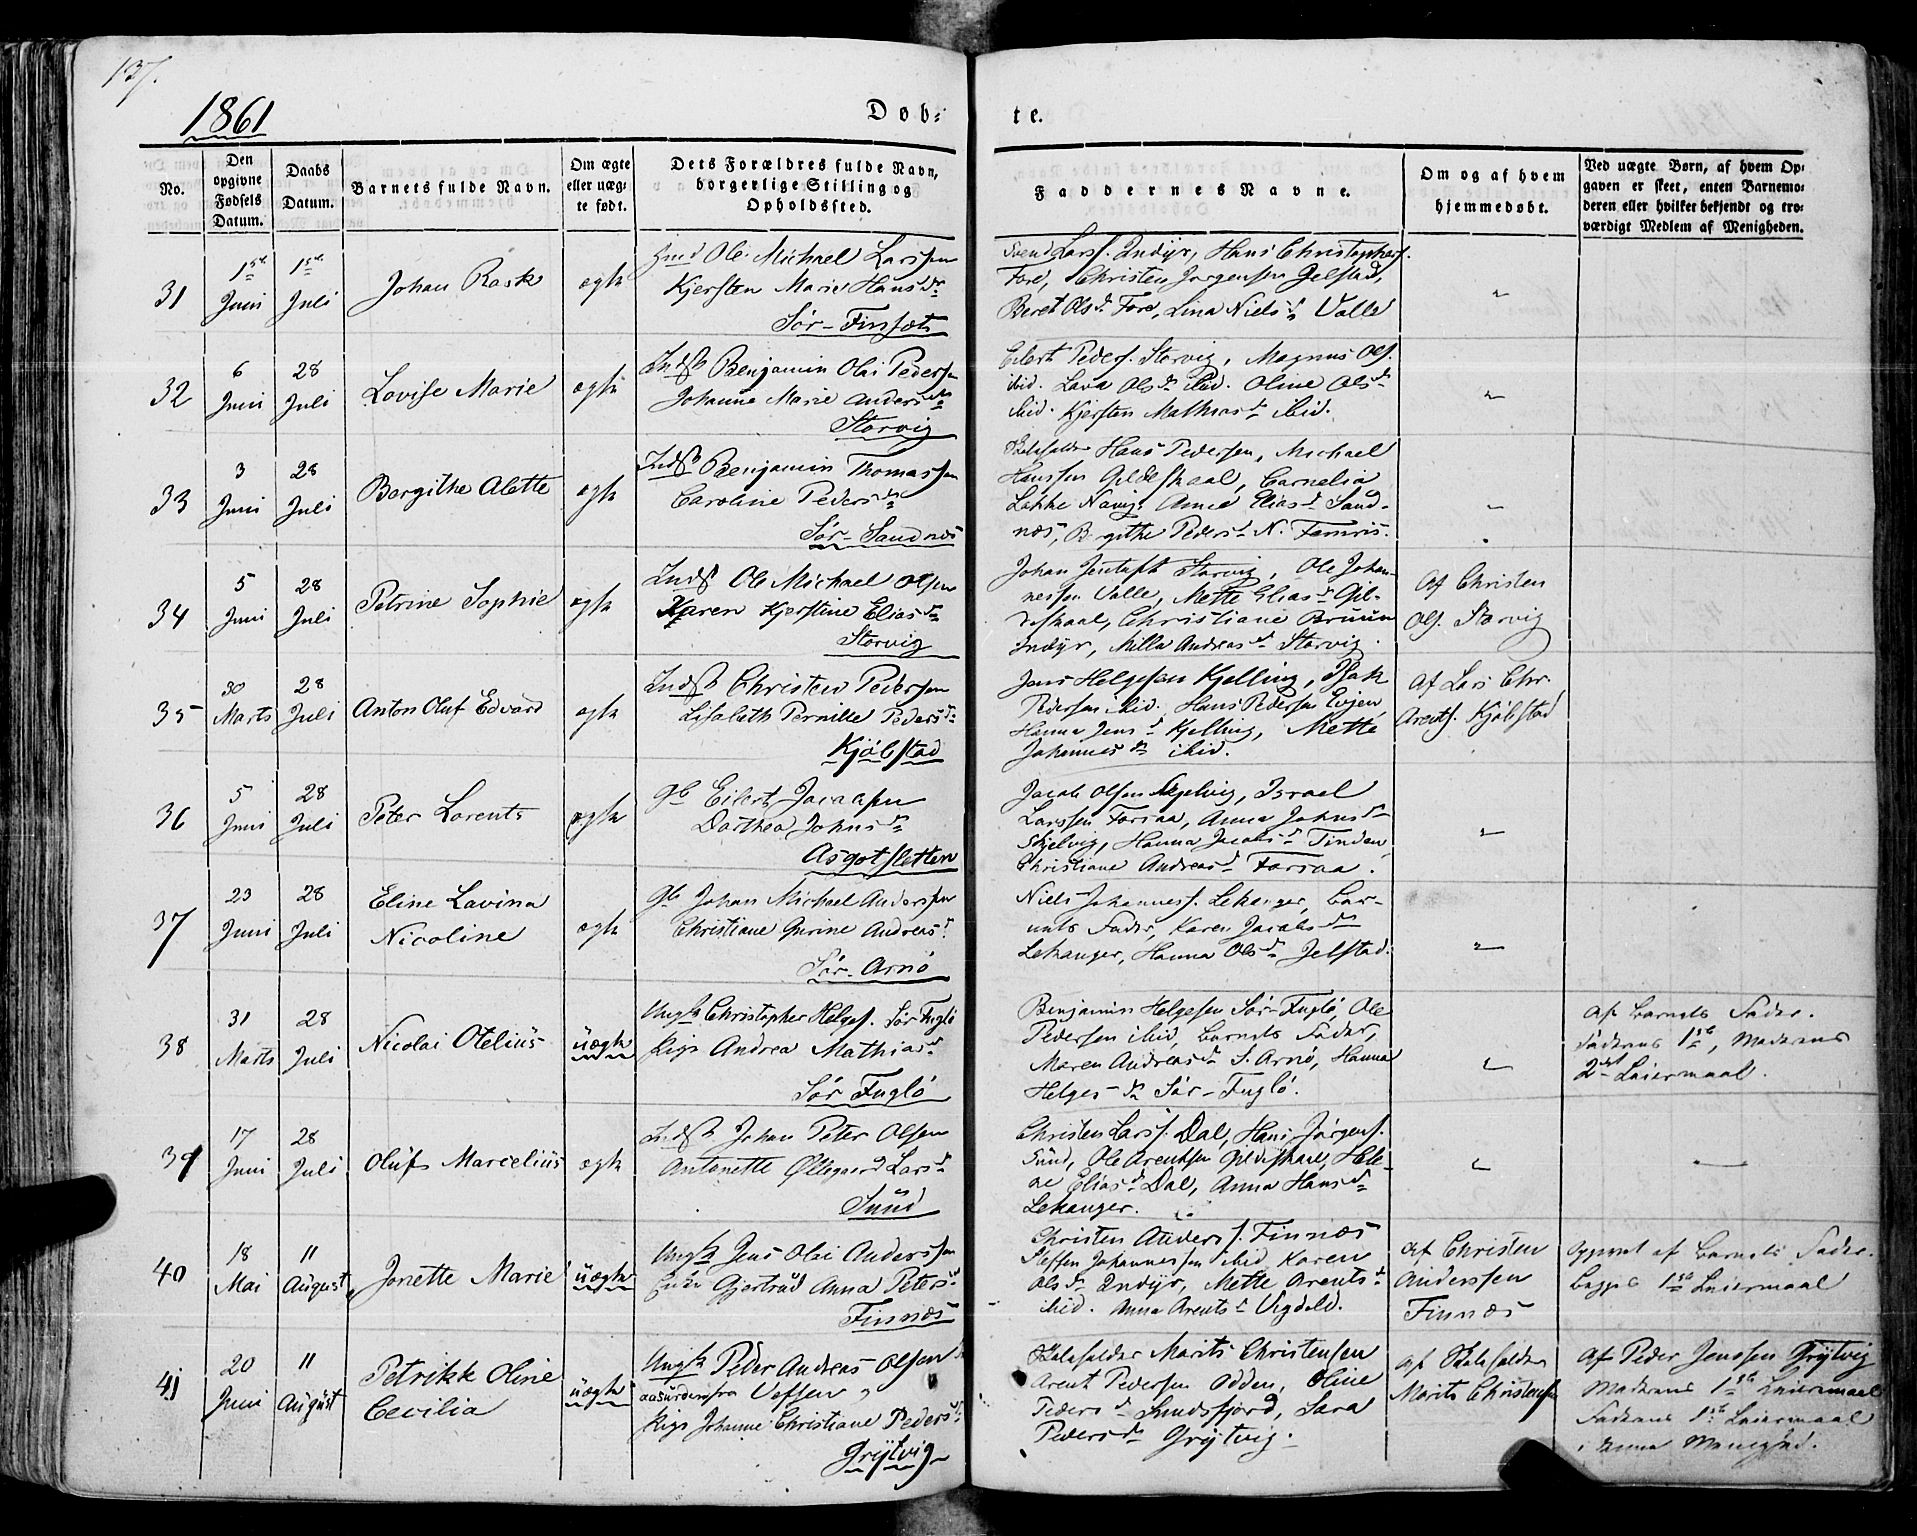 137.
1861
Døb-
te.
No.
Den opgivne Fødsels Datum.
Daabs Datum.
Barnets fulde Navn.
Om ægte eller uæg-
te født.
Dets Forældres fulde Navn,
borgerlige Stilling og
Opholdssted.
Faddernes Navne.
Om og af hvem
hjemmedøbt.
Ved uægte Børn, af hvem Op-
gaven er skeet, enten Barnemo-
deren eller hvilket bekjendt og tro-
værdigt Medlem af Menigheden.
31
1ste Juni
1ste Juli
Johan Rask
ægte
Ole Michael Larssen
Kjersten Marie Hansdr
Sør-Finsæt
Svend Larss. Indyr, Hans Christophers.
Fore, Christen Jørgensen Gjelstad,
Beret Olsdr Fore, Lina Nielsdr Valle
"
32
6 Juni
28 Juli
Lovise Marie
ægte
Inds Benjamin Olai Pedersen
Johanne Marie Andersdr
Storvig
Eilert Peders. Storvig, Magnus Ols.
ibid. Lava Olsdr ibid. Oline Olsdr
ibid. Kjersten Mathiasdr ibid.
"
33
3 Juni
28 Juli
Bergithe Alette
ægte
Inds Benjamin Thomassen
Caroline Pedersdr
Sør-Sandnæs
Hans Pedersen, Michael
Hanssen Gildeskaal, Cornelia
Løkke Navig. Anne Eliasd Sand-
næs, Birgithe Pedersd N.
"
34
5 Juni
28 Juli
Petrine Sophie
ægte
Inds Ole Michael Olsen
Karen Kjerstine Eliasdr
Storvig
Johan Jentoft Storvig, Ole Johan-
nessen Valle, Mette Eliasd Gil-
deskaal, Christiane Bruun
Indyr, Milla Andreasd Storvig.
Af Christen
Ols. Storvig
35
30 Marts
28 Juli
Anton Oluf Edvard
ægte
Inds Christen Pedersen
Lisabeth Pernille Pedersdr
Kjøbstad
Jens Helgesen Kjelling, Isak
Pedersen ibid. Hans Pedersen Evjen,
Hanna Jensd Kjelling, Mette
Johannesdr ibid.
Af Lars Chr.
Arents. Kjøbstad
36
5 Juni
28 Juli
Peter Lorents
ægte
Gb Eilert Jacobsen
Dorthea Johnsdr
Asgotsletten
Jacob Olsen Skjelvig, Israel
Larssen Forsaa, Anna Johnsdr
Skjelvig, Hanna Jacobsdr Tinden,
Christiane Andreasd Forsaa.
"
37
23 Juni
28 Juli
Eline Lavina
Nicoline
ægte
Gb Johan Michael Anderssen
Christiane Gurine Andreasd.
Sør-Arnø
Niels Johanness. Lekanger, Bar-
nets Fader, Karen Jacobsdr
Lekanger, Hanna Olsdr Jelstad.
"
38
31 Marts
28 Juli
Nicolai Otelius
uægte
Ungk Christopher Helges. Sør-Fuglø
Pige Andrea Mathiasd
Sør Fuglø
Benjamin Helgesen Sør-Fuglø, Ole
Pedersen ibid, Barnets Fader,
Maren Andreasdr S. Arnø, Hanna
Helges-dr Sør-Fuglø.
"
Af Barnets Fader.
Faderens 1ste, Moderens
2det Leiermaal.
39
17 Juni
28 Juli
Oluf Marcelius
ægte
Inds Johan Peter Olsen
Antonette Øllegaard Larsd
Sund
Christen Larss. Dal, Hans Jørgens.
Sund, Ole Arentsen Gildeskaal, Hele-
ne Eliasd Dal, Anna Hansdr
Lekanger.
"
40
18 Mai
11 August
Jonette Marie
uægte
Ungk Jens Olai Anderssen
Enke Gjertrud Anna Petersd
Finnæs
Christen Anders s. Finnæs
Steffen Johannessen ibid Karen
Olsdr Indyr, Mette Arentsd
ibid. Anna Arentsd Vigdal.
Af Christen
Anderssen
Finnæs
Opgivet af Barnets Fader.
Begges 1ste Leiermaal
41
20 Juni
11 August
Petrikke Oline
Cecilia
uægte
Ungk Peder Andreas Olsen
fra Vefsen,
Pige Johanne Christiane Pedersd
Grytvig
Skoleholder Morits Christensen
Arent Pedersen Odden, Oline
Pedersd Sundsfjord, Sara
Pedersdr Grytvig.
Af Skoleholder
Morits Christensen
Af Peder Jenssen Grytvig
Moderens 1ste Leiermaal
Faderens 1ste Leiermaal
i denne Menighed.